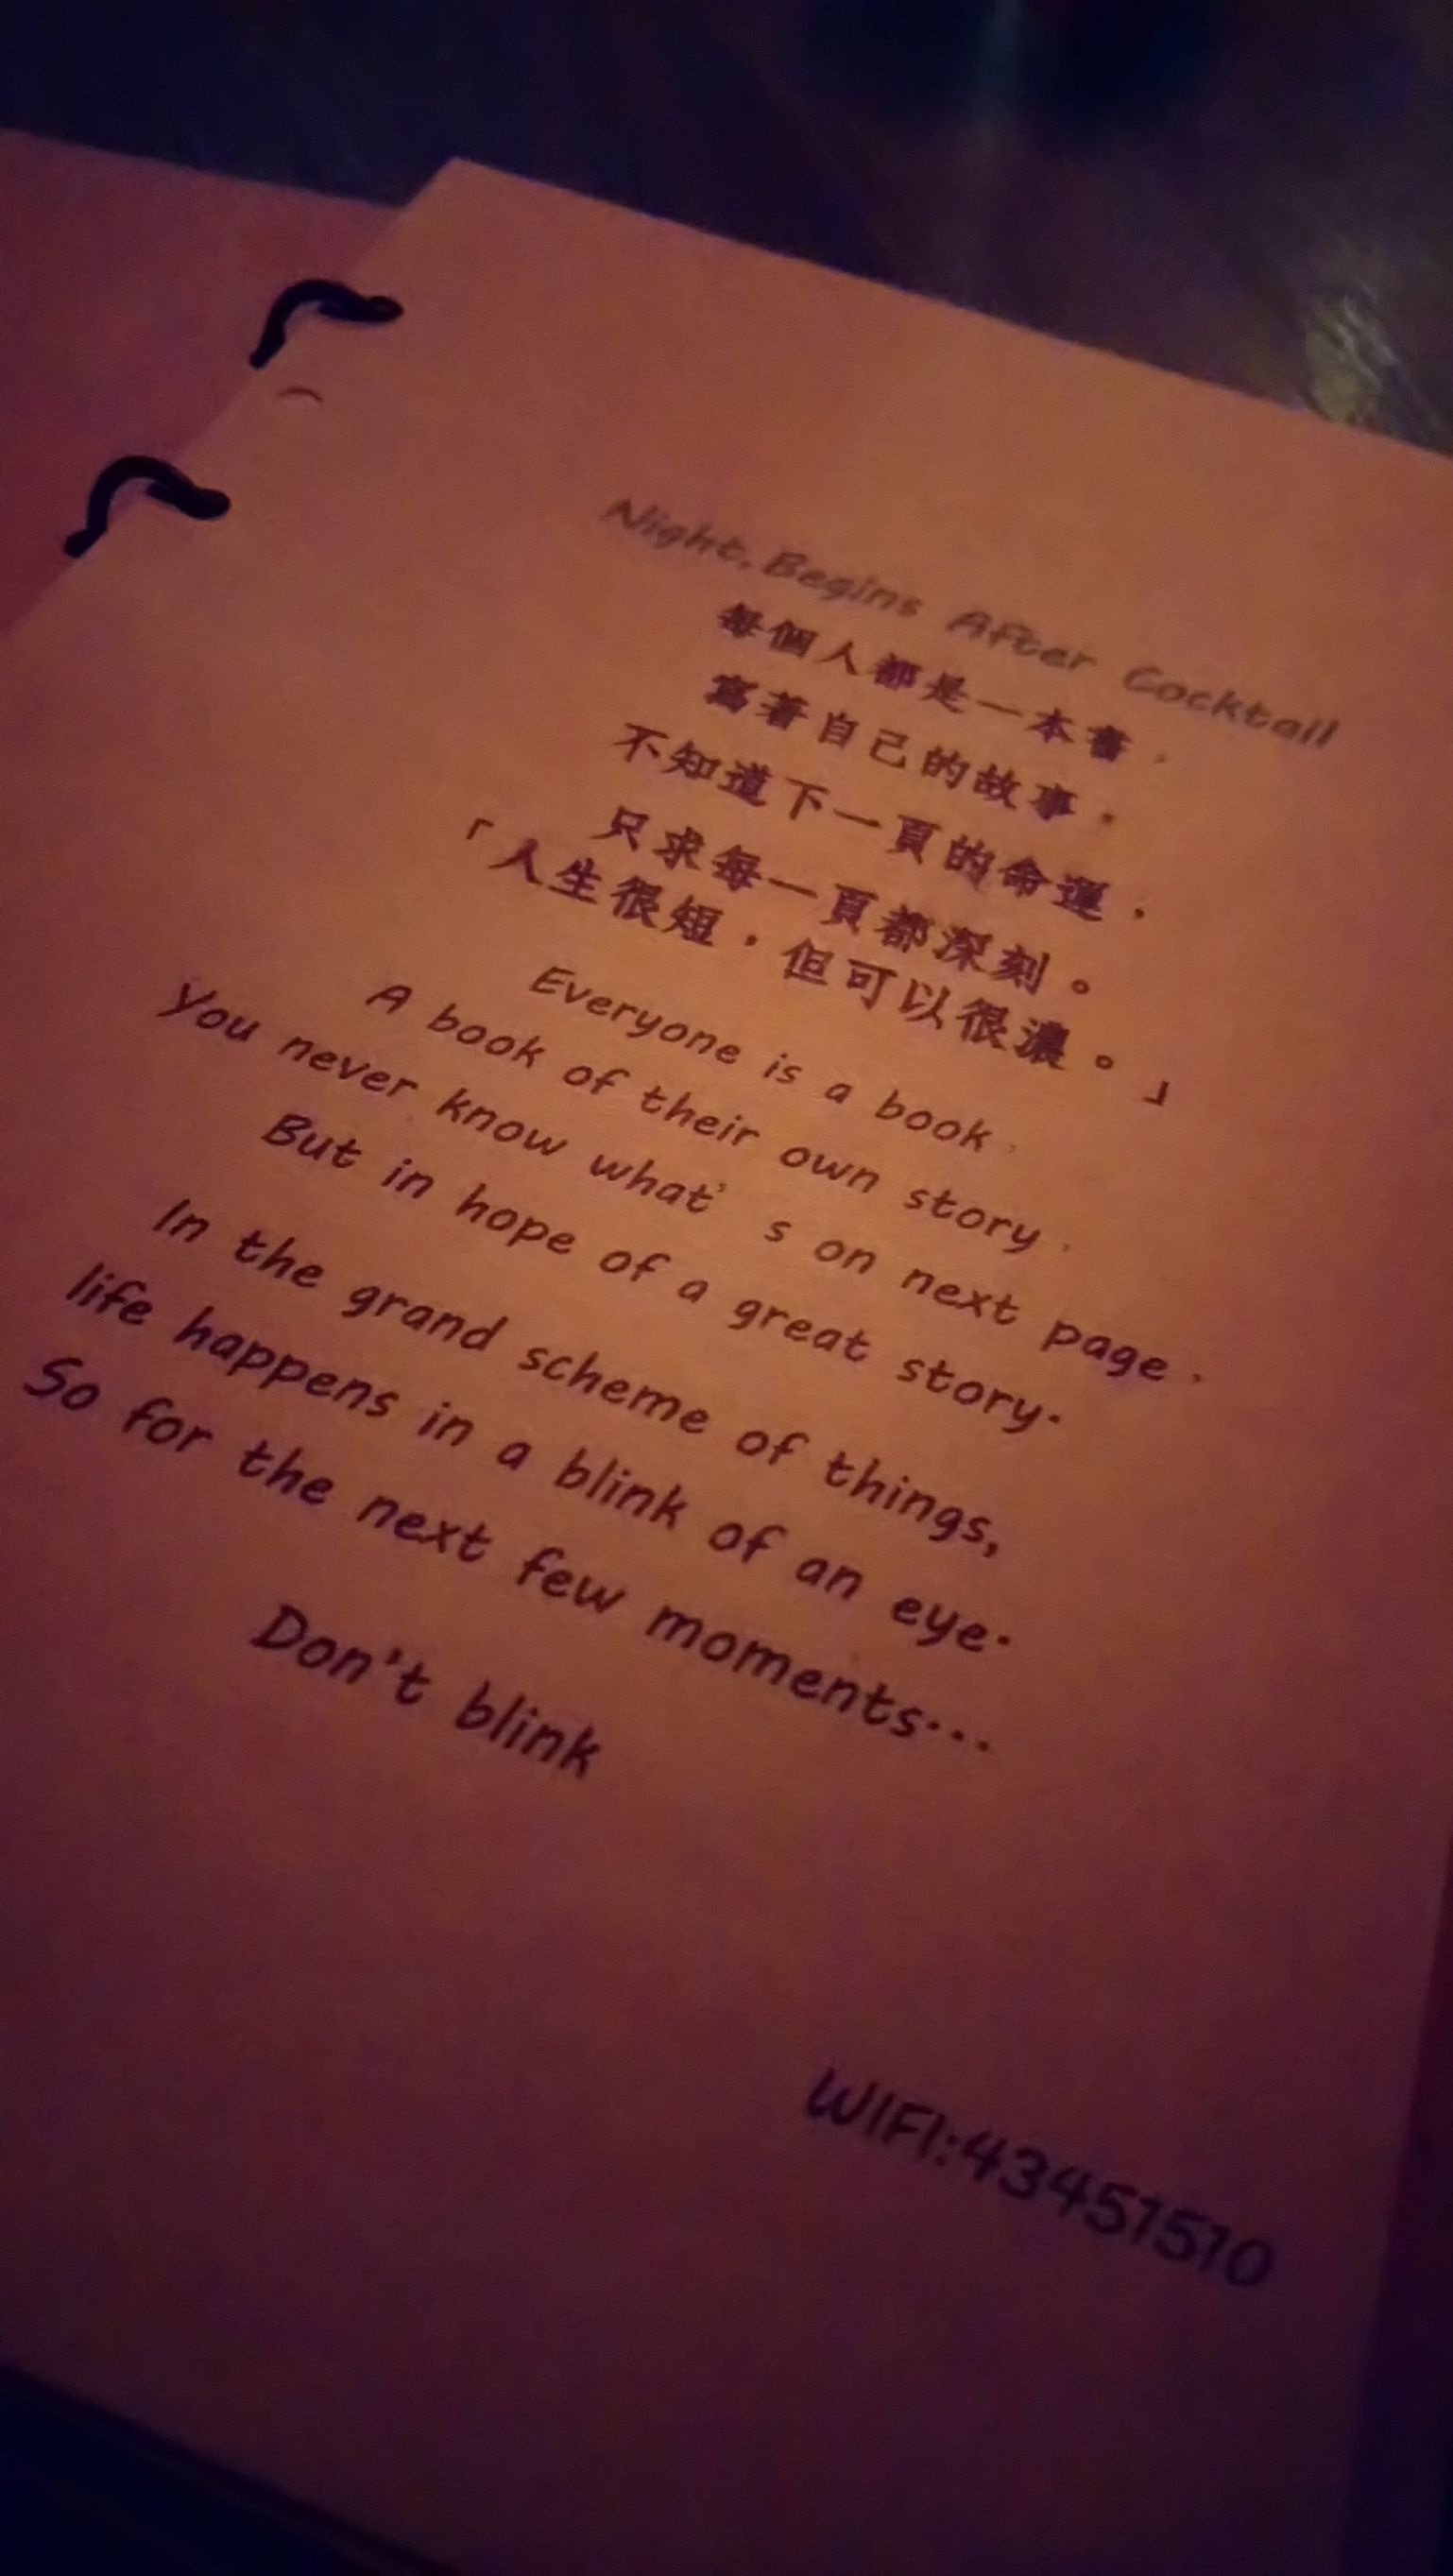 Night, Begins After Cocktail
每個人都是一本書，
寫著自己的故事，
不知道下一頁的命運，
只求每一頁都深刻。
「人生很短，但可以很濃。」
Everyone is a book，
A book of their own story，
You never know what’ s on next page，
But in hope of a great story.
In the grand scheme of things,
life happens in a blink of an eye.
So for the next few moments...
Don't blink
WIFI:43451510